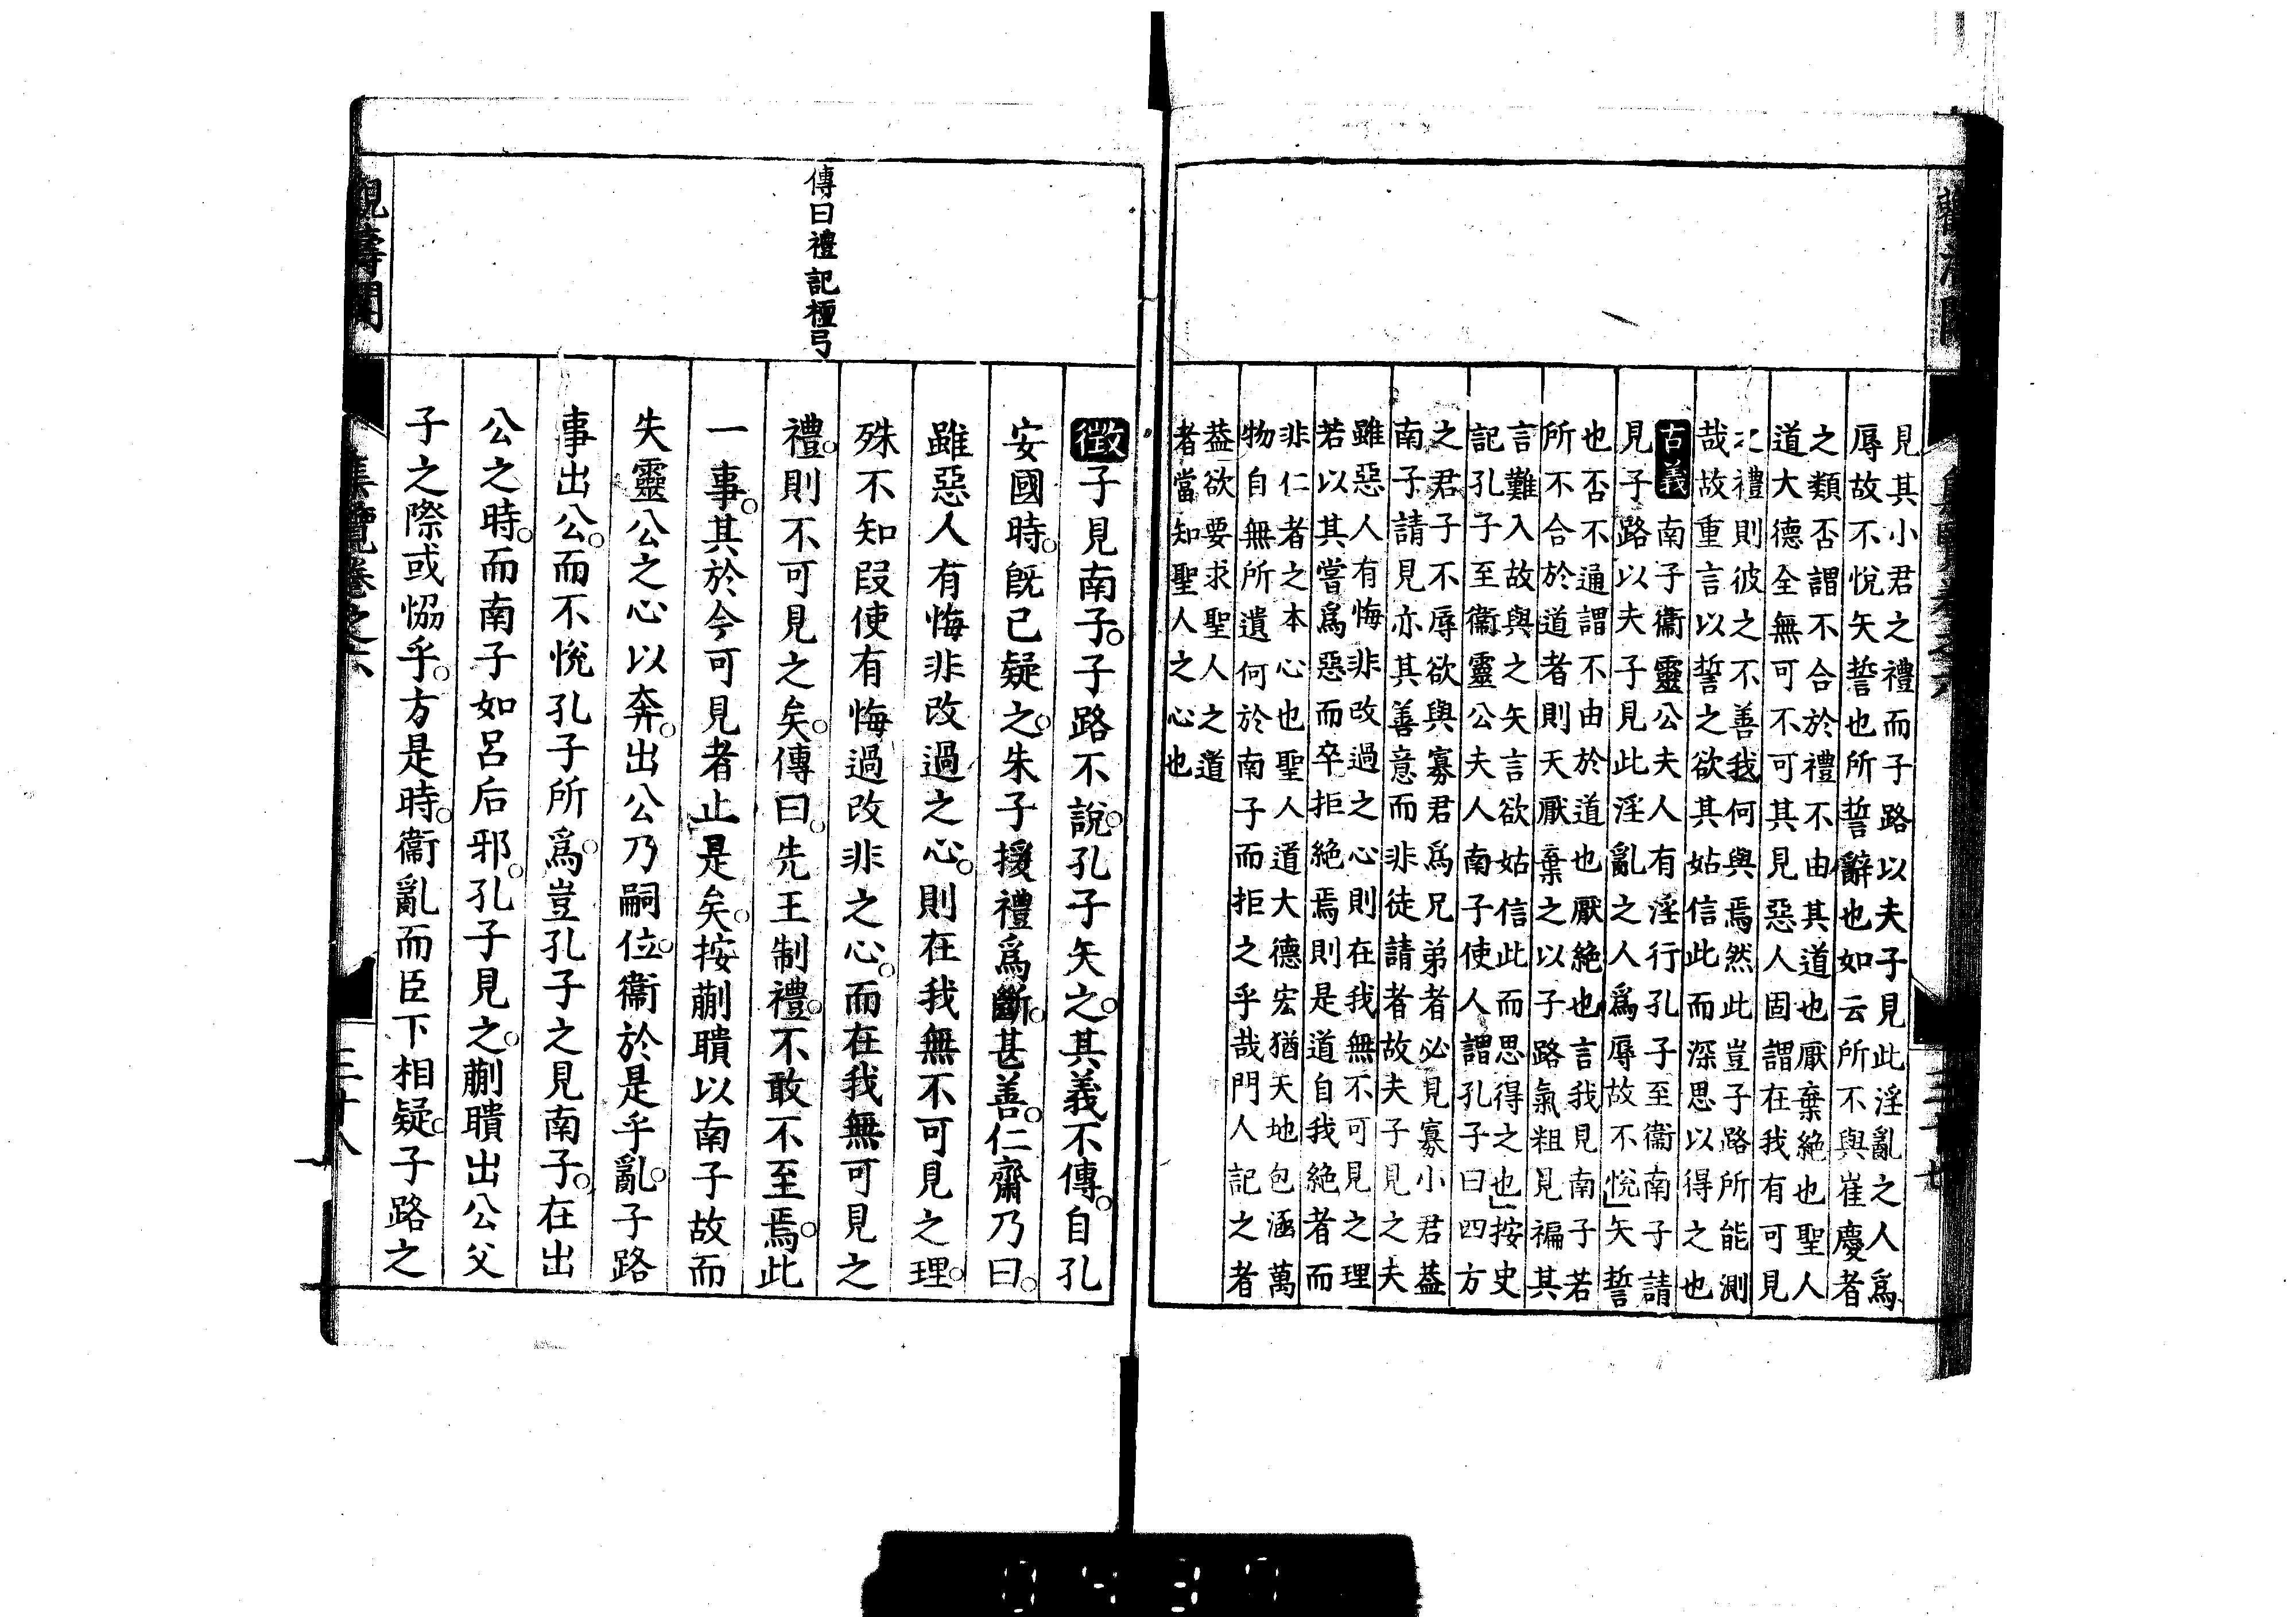 見其小君之禮而子路以夫子見此淫亂之人爲
辱故不悅矢誓也所誓辭也如云所不與崔慶者
之類否謂不合於禮不由其道也厭棄絶也聖人
道大德全無可不可其見惡人固謂在我有可見
之禮則彼之不善我何與焉然此豈子路所能測
哉故重言以誓之欲其姑信此而深思以得之也
古義南子衞靈公夫人有淫行孔子至衞南子請
見子路以夫子見此淫亂之人爲辱故不悅矢誓
也否不通謂不由於道也厭絶也言我見南子若
所不合於道者則天厭棄之以子路氣粗見褊其
言難入故與之矢言欲姑信此而思得之也按史
記孔子至衞靈公夫人南子使人謂孔子曰四方
之君子不辱欲與寡君爲兄弟者必見寡小君葢
南子請見亦其善意而非徒請者故夫子見之夫
雖惡人有悔非改過之心則在我無不可見之理
若以其嘗爲惡而卒拒絶焉則是道自我絶者而
非仁者之本心也聖人道大德宏猶天地包涵萬
物自無所遺何於南子而拒之乎哉門人記之者
葢欲要求聖人之道
者當知聖人之心也
傳曰禮記檀弓
徵子見南子子路不說孔子矢之其義不傳自孔
安國時既已疑之朱子援禮爲斷甚善仁齋乃曰
雖惡人有悔非改過之心則在我無不可見之理
殊不知叚使有悔過改非之心而在我無可見之
禮則不可見之矣傳曰先王制禮不敢不至焉此
一事其於今可見者止是矣按蒯聵以南子故而
失靈公之心以奔出公乃嗣位衞於是乎亂子路
事出公而不悅孔子所爲豈孔子之見南子在出
公之時而南子如呂后邪孔子見之蒯聵出公父
子之際或恊乎方是時衞亂而臣下相疑子路之
集覽卷之六
三十八